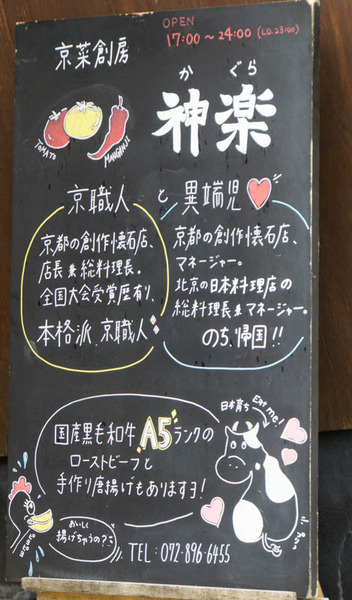 OPEN
17:00～24:00 (L.O.23:00)
京菜創房
かぐら
神楽
TOMATO
MANGANJI
京職人 と 異端児
京都の創作懐石店、
店長兼総料理長。
全国大会受賞歴有り、
本格派 京職人
京都の創作懐石店、
マネージャー。
北京の日本料理店の
総料理長兼マネージャー。
のち、帰国!!
日本育ち
Eat me!
国産黒毛和牛 A5ランクの
ローストビーフと
手作り唐揚げもありますヨ!
おいしく
揚げちゃうの?
TEL:072-896-6455